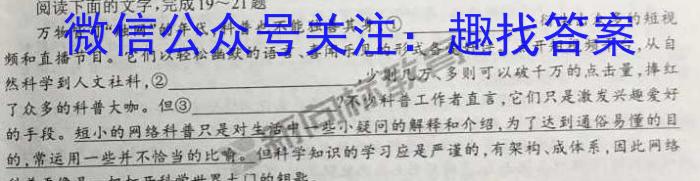 阅读下面的文字,完成19~21题
微信公众号关注：趣找答案
万物皆可"独播"的年代,科普也不能独善其身。① 的短视
频和直播节目。它们以轻松幽默的语言、喜闻乐见的形式 从自
然科学到人文社科,② ,少则几万、多则可以破千万的点击量,捧红
了众多的科普大咖。但③ ?不少科普工作者直言,它们只是激发兴趣爱好
的手段。短小的网络科普只是对生活中一些小疑问的解释和介绍,为了达到通俗易懂的目
的,常运用一些并不恰当的比喻。但科学知识的学习应是严谨的,有架构、成体系,因此网络
科学世界大门的钥匙